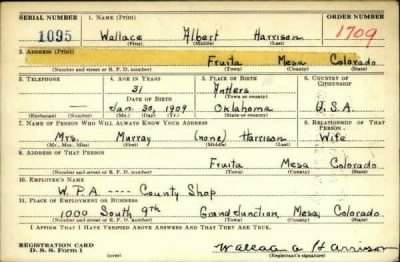 SERIAL NUMBER 1. NAME (Print) ORDER NUMBER
1095 Wallace Albert Harrison 1709
(First) (Middle) (Last)
2. ADDRESS (Print)
Fruita Mesa Colorado
(Number and street or R. F. D. number) (Town) (County) (State)
3. TELEPHONE 4. AGE IN YEARS 5. PLACE OF BIRTH 6. COUNTRY OF CITIZENSHIP
31 Antlers
DATE OF BIRTH (Town or county)
Jan. 30, 1909 Oklahoma U.S.A.
(Exchange) (Number) (Mo.) (Day) (Yr.) (State or country)
7. NAME OF PERSON WHO WILL ALWAYS KNOW YOUR ADDRESS 8. RELATIONSHIP OF THAT PERSON
Mrs. Murray (none) Harrison Wife
(Mr., Mrs., Miss) (First) (Middle) (Last)
9. ADDRESS OF THAT PERSON
Fruita Mesa Colorado
(Number and street or R. F. D. number) (Town) (County) (State)
10. EMPLOYER'S NAME
W.P.A. ---- County Shop
11. PLACE OF EMPLOYMENT OR BUSINESS
1000 South 9th Grand Junction, Mesa, Colorado
(Number and street or R. F. D. number) (Town) (County) (State)
I AFFIRM THAT I HAVE VERIFIED ABOVE ANSWERS AND THAT THEY ARE TRUE.
REGISTRATION CARD
D. S. S. Form 1 (over) Wallace A Harrison
(Registrant's signature)